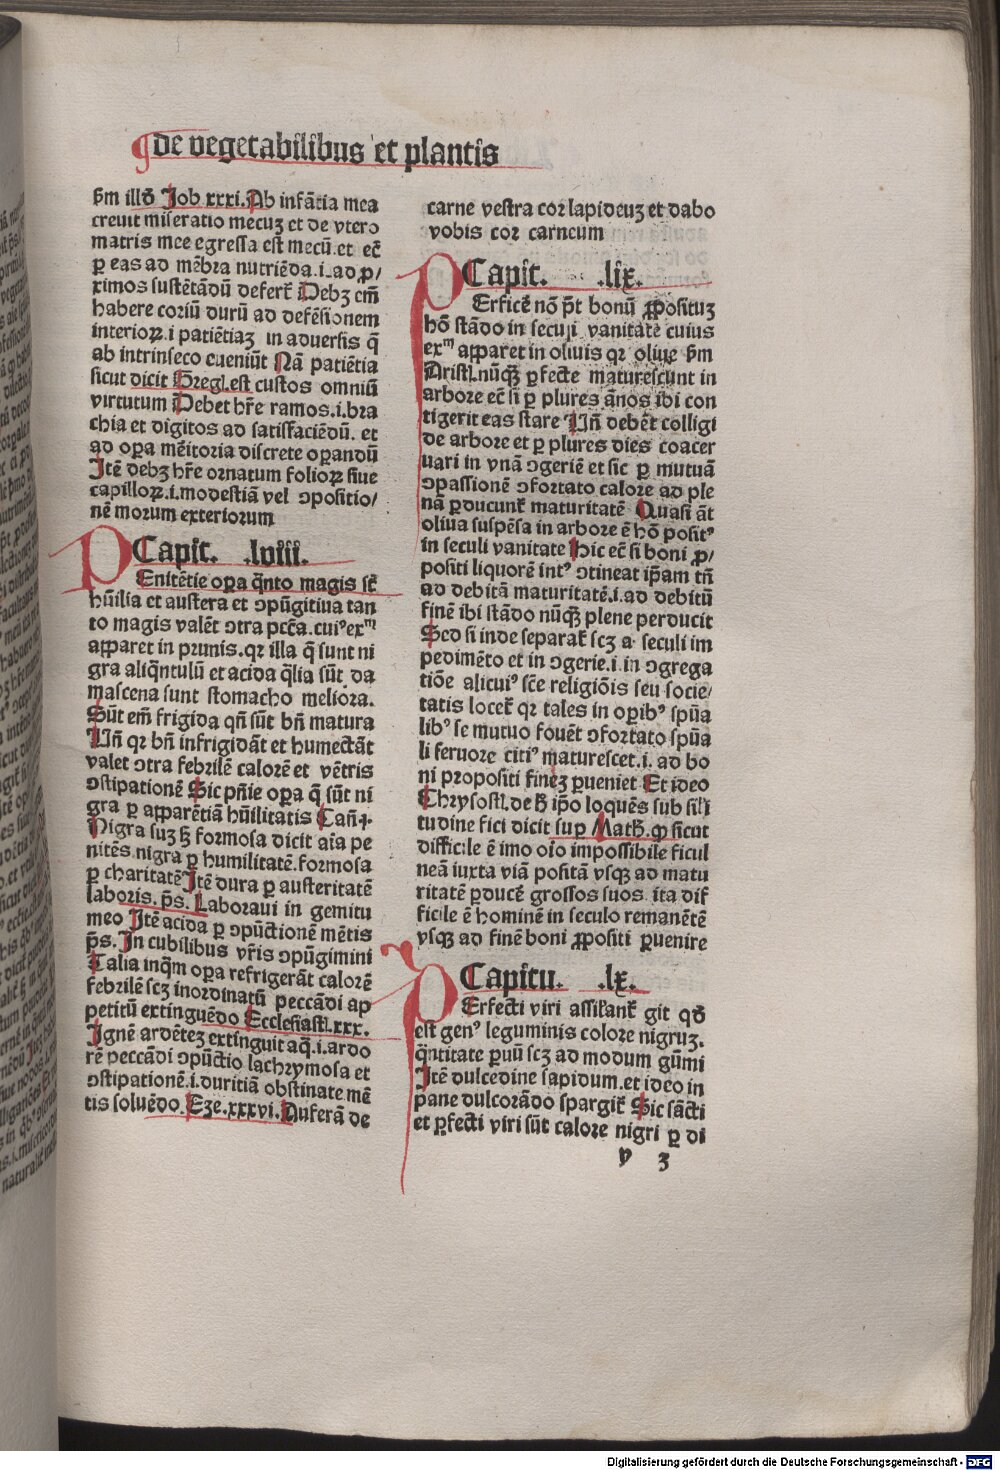 de vegetabilibus et plantis
ẜm illđ Job xxxi. Ab infãtia mea
creuit miseratio mecuʒ et de vtero
matris mee egressa est mecũ. et eĉ
ꝑ eas ad mẽbra nutriẽda .i. ad ꝓ/
ximos sustẽtãdũ deferĩ Debʒ cm̃
habere coriũ durũ ad defẽsionem
interioꝝ .i. patiẽtiaʒ in aduersis q̃
ab intrinseco eueniũt Nã patiẽtia
sicut dicit Gregͥ. est custos omniũ
virtutum Debet hr̃e ramos .i. bra
chia et digitos ad satisfaciẽdũ. et
ad oꝑa mẽitoria discrete oꝑandũ
Jtẽ debʒ hr̃e ornatum folioꝝ siue
capilloꝝ .i. modestiã vel ꝯpositio/
nẽ morum exteriorum
Capit. .lviii.
PEnitẽtie oꝑa q̃nto magis sĉ
hũilia et austera et ꝯpũgitiua tan
to magis valẽt ꝯtra pctã. cuiꝰ exᵐ
apparet in prunis. qr illa q̃ sunt ni
gra aliq̃ntulũ et acida q̃lia sũt da
mascena sunt stomacho meliora.
Sũt em̃ frigida qñ sũt bñ matura
Uñ qr bñ infrigidãt et humectãt
valet ꝯtra febrilẽ calorẽ et vẽtris
ꝯstipationẽ Sic pñie oꝑa q̃ sũt ni
gra ꝑ apparẽtiã hũilitatis Cañ .i.
Nigra suʒ ẜ formosa dicit aĩa pe
nitẽs nigra ꝑ humilitatẽ. formosa
ꝑ charitatẽ Jtẽ dura ꝑ austeritatẽ
laboris. p̃s. Laboraui in gemitu
meo Jtẽ acida ꝑ ꝯpũctionẽ mẽtis
p̃s. In cubilibus vr̃is ꝯpũgimini
Talia inq̃m oꝑa refrigerãt calorẽ
febrilẽ scʒ inordinatũ peccãdi ap
petitũ extinguẽdo Ecclesiastͥ. xxx.
Jgnẽ ardẽteʒ extinguit aq̃ .i. ardo
rẽ peccãdi ꝯpũctio lachrymosa et
ꝯstipationẽ .i. duritiã obstinate mẽ
tis soluẽdo. Eʒe. xxxvi. Auferã de
carne vestra cor lapideuʒ et dabo
vobis cor carneum
Capit. .lix.
PErficẽ nõ p̃t bonũ ꝓpositũʒ
hõ stãdo in seculi vanitate cuius
exᵐ apparet in oliuis qr oliue ẜm
Aristͥ. nũqʒ ꝑfecte maturescunt in
arbore eĉ si ꝑ plures ãnos ibi con
tigerit eas stare Uñ debẽt colligi
de arbore et ꝑ plures dies coacer
uari in vnã ꝯgeriẽ et sic ꝑ mutuã
ꝯpassionẽ ꝯfortato calore ad ple
nã ꝑducunĩ maturitatẽ Quasi ãt
oliua suspẽsa in arbore ẽ hõ positꝰ
in seculi vanitate Hic eĉ si boni ꝓ/
positi liquorẽ intꝰ ꝯtineat ip̃am tñ
ad debitã maturitatẽ .i. ad debitũ
finẽ ibi stãdo nũqʒ plene perducit
Sed si inde separaĩ scʒ a seculi im
pedimẽto et in ꝯgerie .i. in ꝯgrega
tiõe alicuiꝰ sc̃e religiõis seu socie/
tatis loceĩ qr tales in oꝑibꝰ spũa
libꝰ se mutuo fouẽt ꝯfortato spũa
li feruore citiꝰ maturescet .i. ad bo
ni propositi fineʒ ꝑueniet Et ideo
Chrysostͥ. de ħ ip̃o loquẽs sub sil̃i
tudine fici dicit suꝑ Math. ꝙ sicut
difficile ẽ imo oĩo impossibile ficul
neã iuxta viã positã vsqʒ ad matu
ritatẽ ꝑducẽ grossos suos ita dif
ficile ẽ hominẽ in seculo remanẽtẽ
vsqʒ ad finẽ boni ꝓpositi ꝑuenire
Capitu. .lx.
PErfecti viri assilanĩ git qđ
est genꝰ leguminis colore nigruʒ.
q̃ntitate ꝑuũ scʒ ad modum gũmi
Jtẽ dulcedine sapidum. et ideo in
pane dulcorãdo spargiĩ Sic sãcti
et ꝑfecti viri sũt calore nigri ꝑ di
y 3
Digitalisierung gefördert durch die Deutsche Forschungsgemeinschaft - DFG